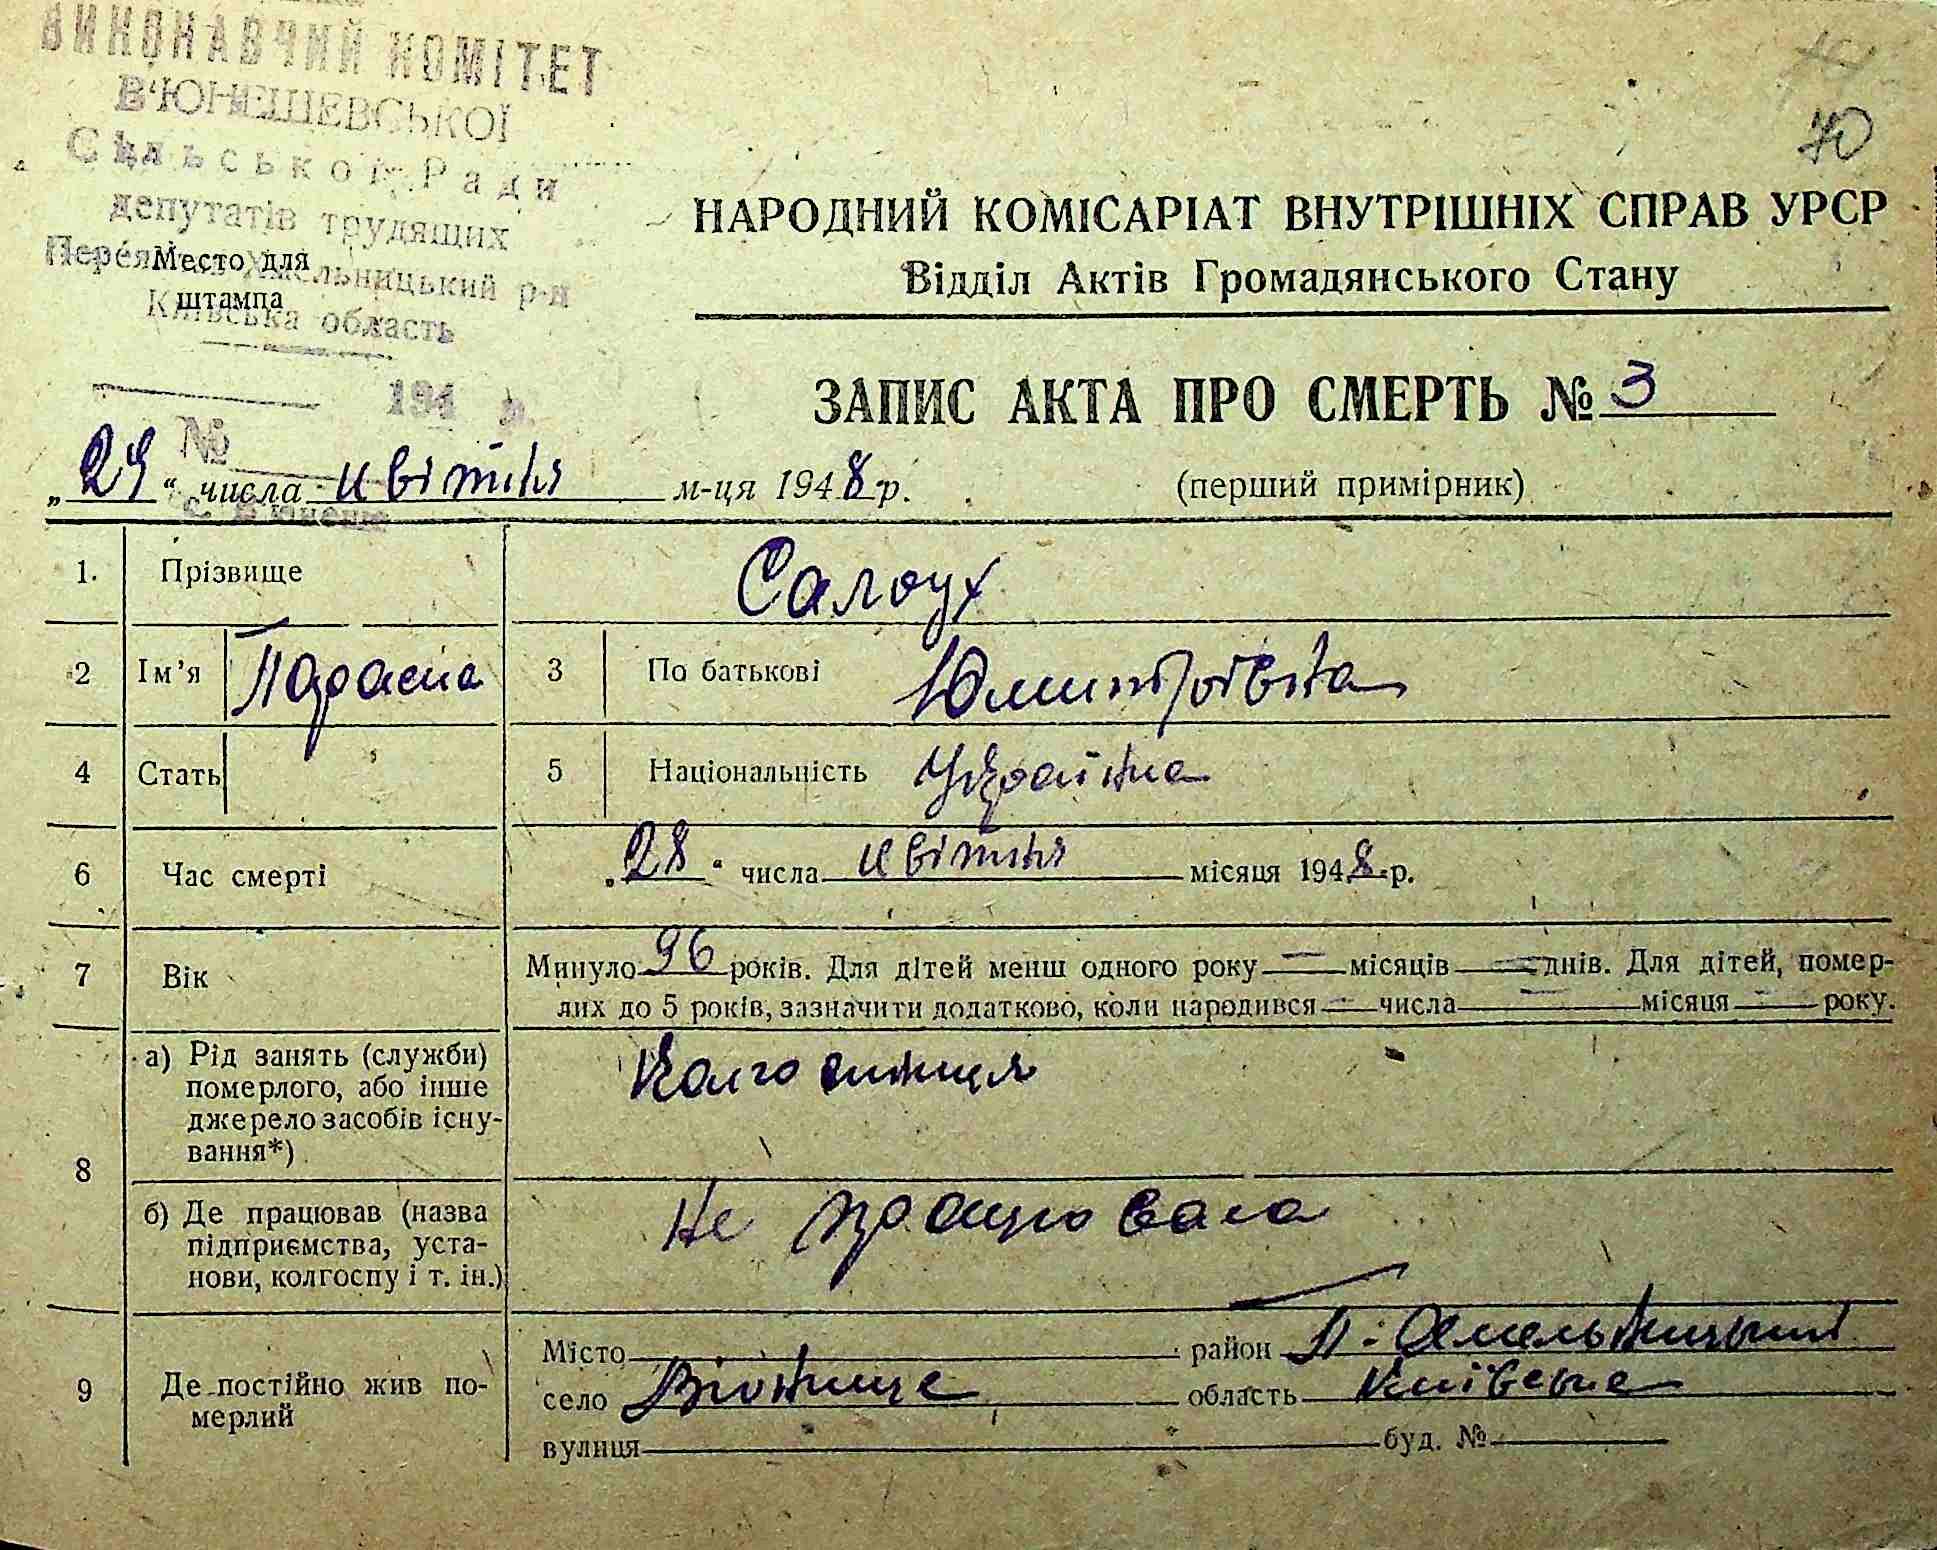 ВИКОНАВЧИЙ КОМІТЕТ
В'ЮНЕШЕВСЬКОЇ
Сільської Ради
депутатів трудящих
Переяслав Хмельницький р-н
Київська область
194 р.
№
Место для
штампа
70
НАРОДНИЙ КОМІСАРІАТ ВНУТРІШНІХ СПРАВ УРСР
Відділ Актів Громадянського Стану
ЗАПИС АКТА ПРО СМЕРТЬ № 3
„29“ числа квітня м-ця 1948 р. (перший примірник)
1. Прізвище Салоух
2 Ім'я Параска 3 По батькові Юмитровна
4 Стать 5 Національність Україна
6 Час смерті „28“ числа квітня місяця 1948 р.
7 Вік Минуло 96 років. Для дітей менш одного року — місяців — днів. Для дітей, помер-
лих до 5 років, зазначити додатково, коли народився — числа — місяця — року.
8 а) Рід занять (служби) Колгоспниця
померлого, або інше
джерело засобів існу-
вання*)
б) Де працював (назва Не працювала
підприємства, уста-
нови, колгоспу і т. ін.)
9 Де постійно жив по-
мерлий
Місто район П-Хмельницький
село Вюнище область Київська
вулиця буд. №